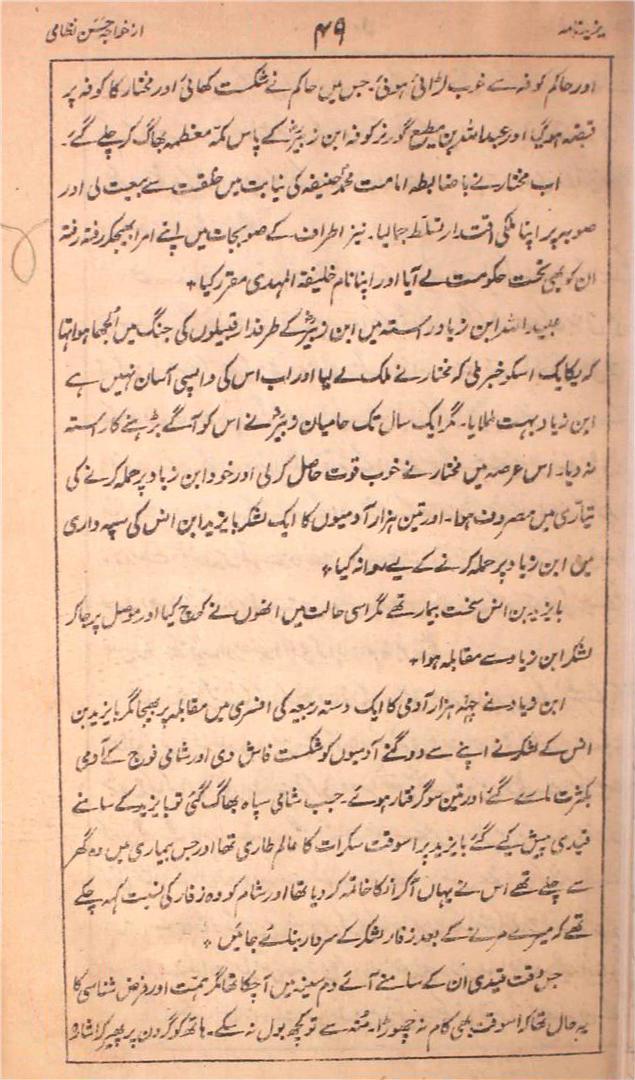 یزید نامہ ۴۹ از خواجہ حسن نظامی
اور حاکم کوفہ سے خوب لڑائی ہوئی۔ جس میں حاکم نے شکست کھائی اور مختار کا کوفہ پر
قبضہ ہو گیا اور عبداللہ بن مطیع گورنر کوفہ ابن زبیرؓ کے پاس مکہ معظمہ بھاگ کر چلے گئے۔
اب مختار نے باضابطہ امامت محمد حنیفہ کی نیابت میں خلقت سے بیعت لی اور
صوبہ پر اپنا ملکی اقتدار تسلط جما لیا۔ نیز اطراف کے صوبجات میں اپنے امرا بھیجکر رفتہ رفتہ
ان کو بھی تحت حکومت لے آیا اور اپنا نام خلیفۃ المہدی مقرر کیا ٭
عبید اللہ ابن زیاد راستہ میں ابن زبیرؓ کے طرفدار قبیلوں کی جنگ میں اُلجھا ہوا تہا
کہ یکایک اسکو خبر ملی کہ مختار نے ملک لے لیا اور اب اس کی واپسی آسان نہیں ہے
ابن زیاد بہت تلملایا۔ مگر ایک سال تک حامیان زبیرؓ نے اس کو آگے بڑہنے کا راستہ
نہ دیا۔ اس عرصہ میں مختار نے خوب قوت حاصل کر لی اور خود ابن زیاد پر حملہ کرنے کی
تیاری میں مصروف ہوا۔ اور تین ہزار آدمیوں کا ایک لشکر بایزید ابن انس کی سپہ داری
میں ابن زیاد پر حملہ کرنے کے لیے روانہ کیا ٭
بایزید بن انس سخت بیمار تھے مگر اسی حالت میں انھوں نے کوچ کیا اور موصل پر جا کر
لشکر ابن زیاد سے مقابلہ ہوا ٭
ابن زیاد نے چھہ ہزار آدمی کا ایک دستہ ربیعہ کی افسری میں مقابلہ پر بھیجا مگر بایزید بن
انس کے لشکر نے اپنے سے دوگنے آدمیوں کو شکست فاش دی اور شامی فوج کے آدمی
بکثرت مارے گئے اور تین سو گرفتار ہوئے۔ جب شامی سپاہ بھاگ گئی تو بایزید کے سامنے
قیدی پیش کیے گئے بایزید پر اسوقت سکرات کا عالم طاری تھا اور جس بیماری میں وہ گھر
سے چلے تھے اس نے یہاں آ کر انکا خاتمہ کر دیا تھا اور شام کو وہ زفار کی نسبت کہہ چکے
تھے کہ میرے مرنے کے بعد زفار لشکر کے سردار بنائے جائیں ٭
جس وقت قیدی ان کے سامنے آئے دم سینہ میں آ چکا تھا مگر ہمت اور فرض شناسی کا
یہ حال تھا کہ اسوقت بھی کام نہ چھوڑا۔ مُنہ سے تو کچھ بول نہ سکے۔ ہاتھ کو گردن پر پھیر کر اشارہ